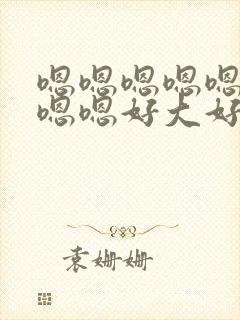 嗯嗯嗯嗯嗯
嗯嗯好大好
袁姗姗